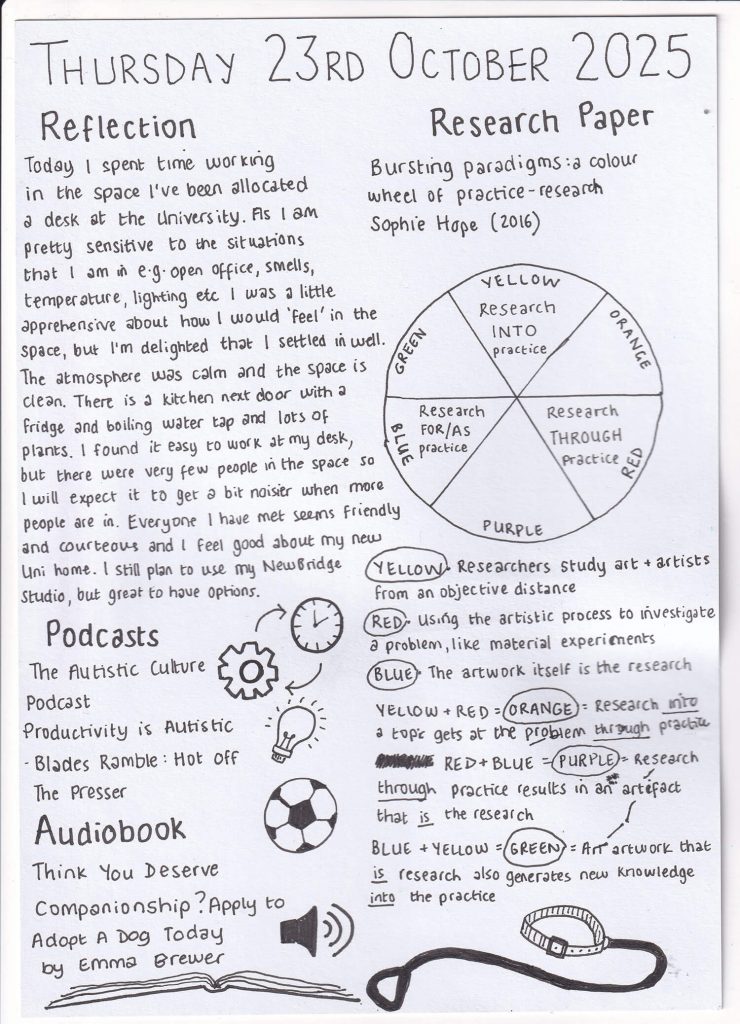 THURSDAY 23RD OCTOBER 2025
Reflection
Today I spent time working
in the space I've been allocated
a desk at the University. As I am
pretty sensitive to the situations
that I am in e.g. open office, smells,
temperature, lighting etc I was a little
apprehensive about how I would 'feel' in the
space, but I'm delighted that I settled in well.
The atmosphere was calm and the space is
clean. There is a kitchen next door with a
fridge and boiling water tap and lots of
plants. I found it easy to work at my desk,
but there were very few people in the space so
I will expect it to get a bit noisier when more
people are in. Everyone I have met seems friendly
and courteous and I feel good about my new
Uni home. I still plan to use my NewBridge
Studio, but great to have options.
Podcasts
The Autistic Culture
Podcast
Productivity is Autistic
- Blades Ramble: Hot off
The Presser
Audiobook
Think You Deserve
Companionship? Apply to
Adopt A Dog Today
by Emma Brewer
Research Paper
Bursting paradigms: a colour
wheel of practice-research
Sophie Hope (2016)
YELLOW
Research
INTO
practice
ORANGE
Research
THROUGH
Practice
RED
PURPLE
Research
FOR/AS
practice
BLUE
GREEN
YELLOW - Researchers study art + artists
from an objective distance
RED - Using the artistic process to investigate
a problem, like material experiments
BLUE - The artwork itself is the research
YELLOW + RED = ORANGE = Research into
a topic gets at the problem through practice
RED + BLUE = PURPLE = Research
through practice results in an artefact
that is the research
BLUE + YELLOW = GREEN = Art artwork that
is research also generates new knowledge
into the practice